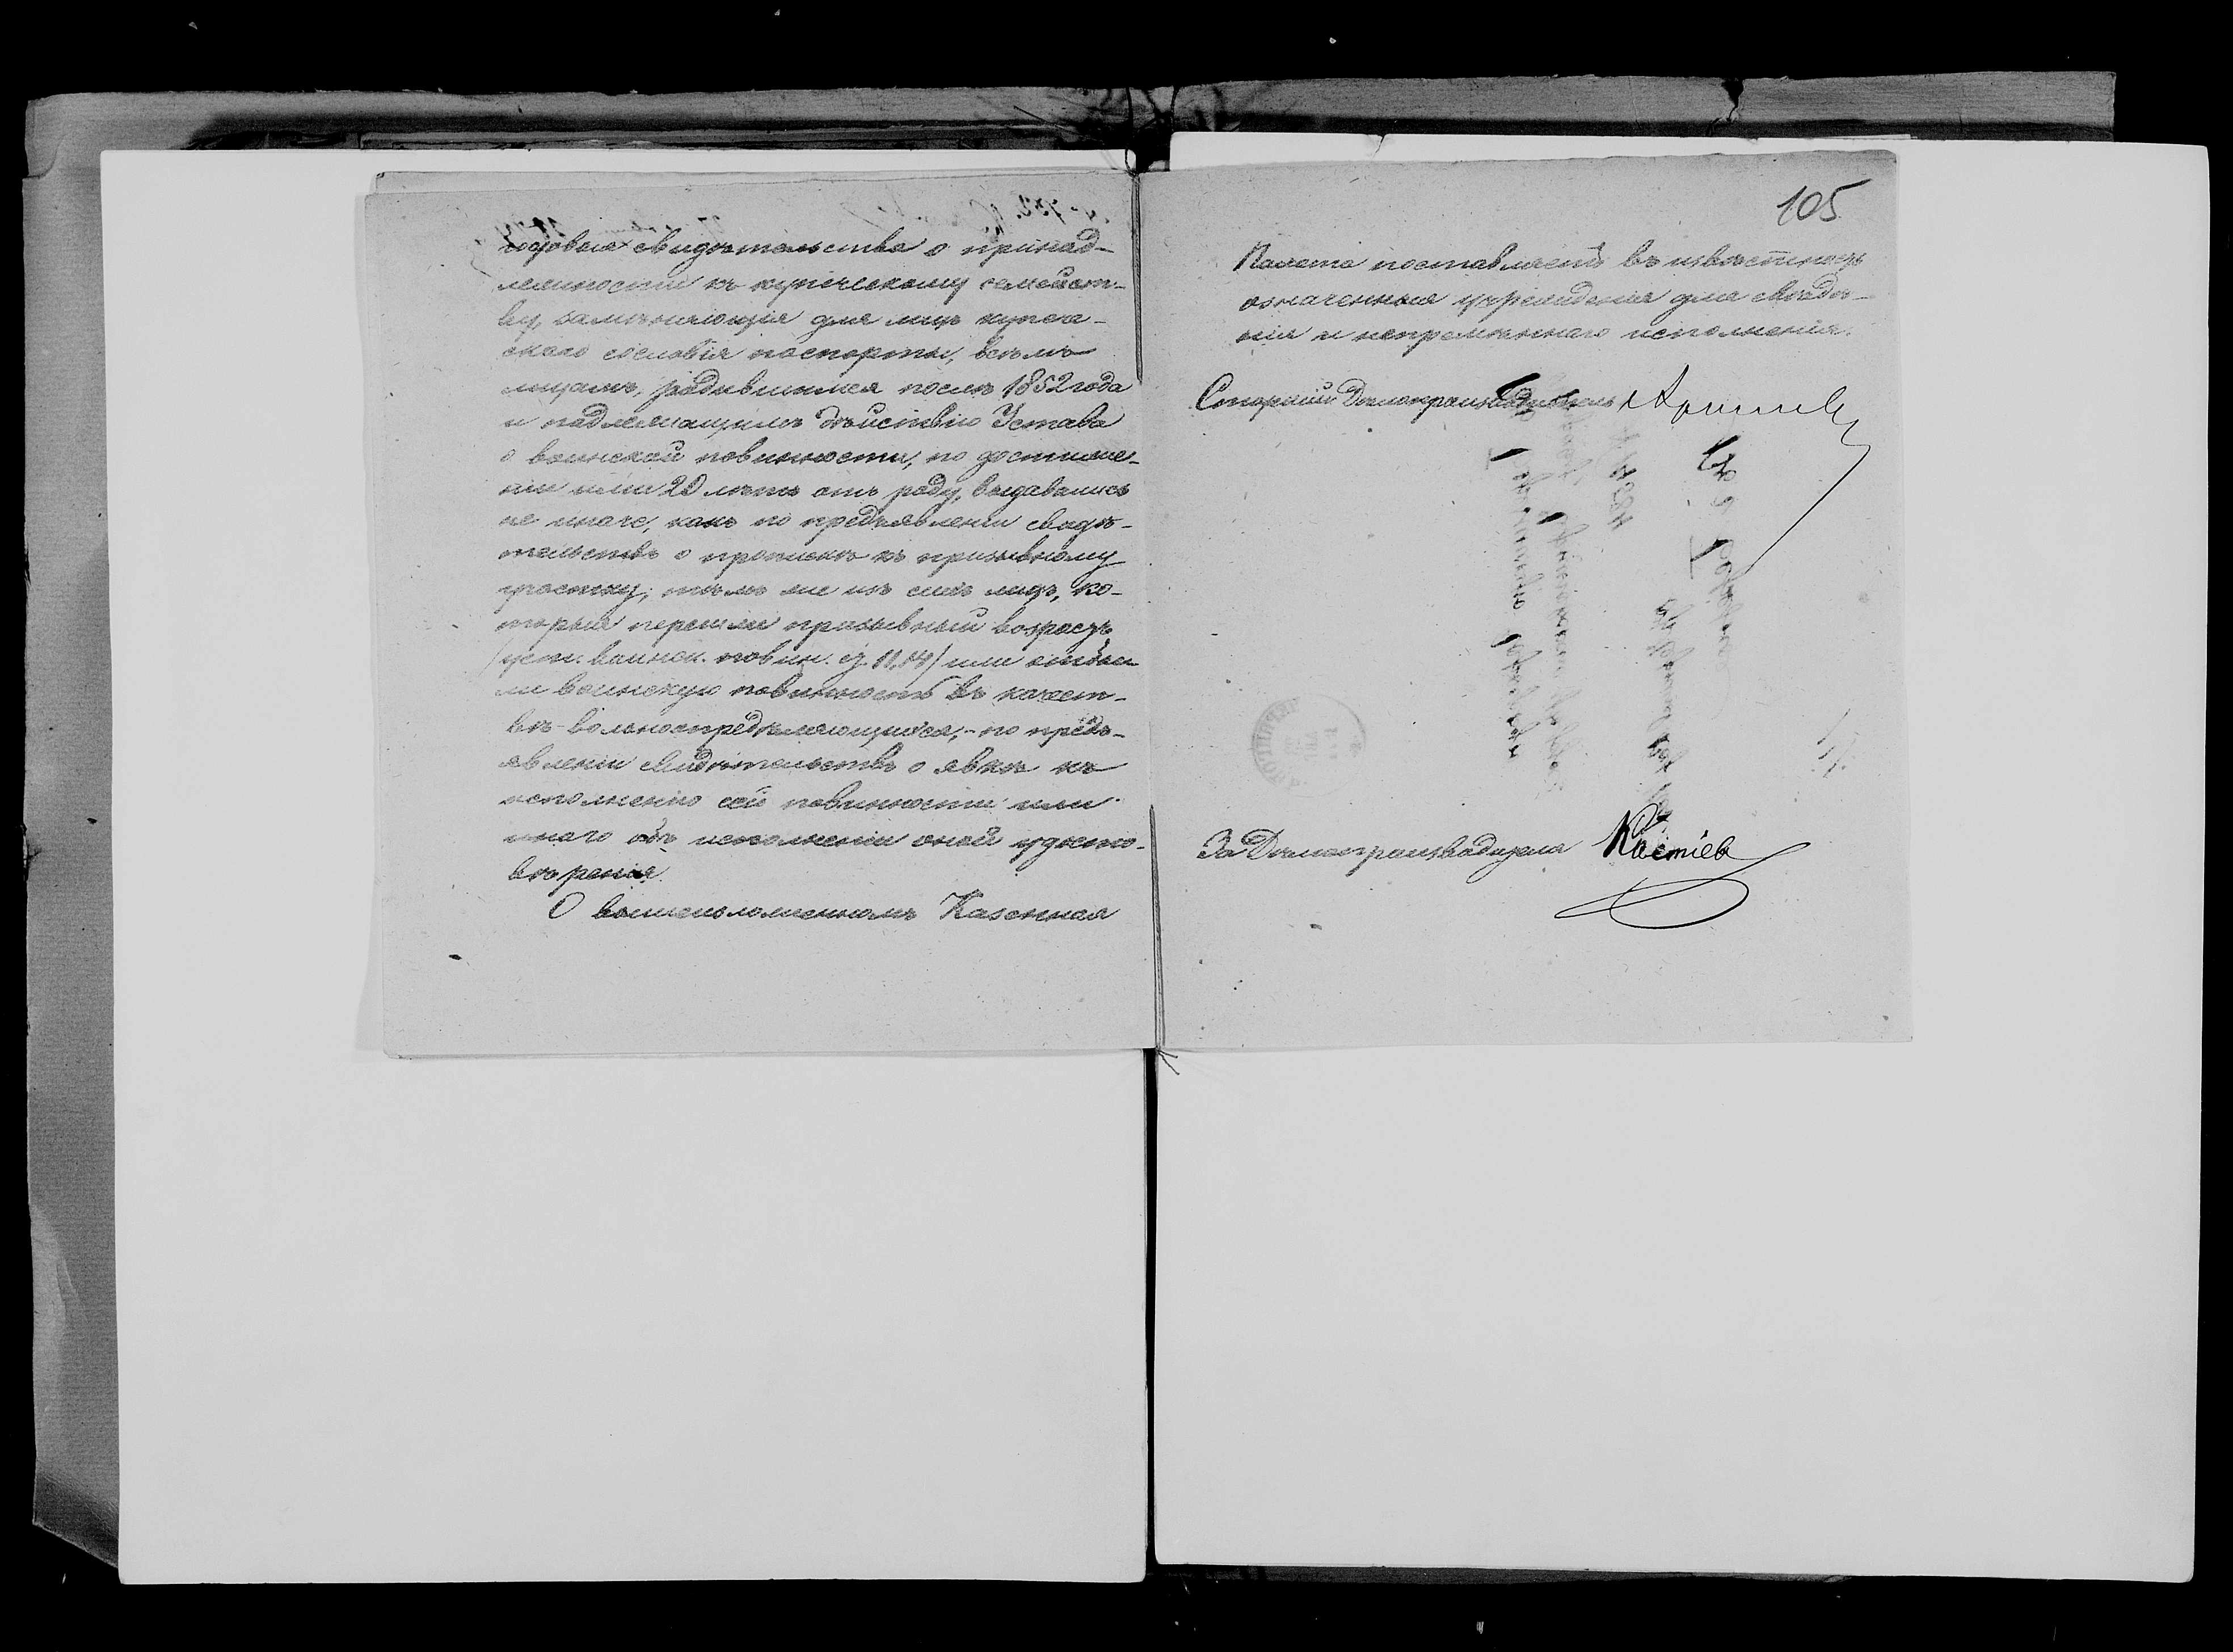 годовыя свидѣтельства о принад-
лежности къ купеческому семейст-
ву, замѣняющія для лицъ купече-
скаго сословія паспорты, всѣмъ
лицамъ, родившимся послѣ 1852 года
и подлежащимъ дѣйствію Устава
о воинской повинности, по достиже-
ніи ими 20 лѣтъ отъ роду, выдавались
не иначе, какъ по предъявленіи свидѣ-
тельствъ о припискѣ къ призывному
участку; тѣмъ же изъ сихъ лицъ, ко-
торыя перешли призывный возрастъ
/уст. воинск. повин. ст. 11,14/ или отбы-
ли воинскую повинность въ качест-
вѣ вольноопредѣляющихся,- по предъ-
явленіи свидѣтельствъ о явкѣ къ
исполненію сей повинности или
инаго объ исполненіи оной удосто-
вѣренія.
О вышеизложенномъ Казенная
105
Палата поставляетъ въ извѣстность
означенныя учрежденія для свѣдѣ-
нія и непремѣннаго исполненія.
Старшій Дѣлопроизводитель
За Дѣлопроизводителя Костіевъ